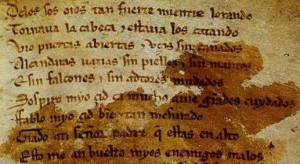 Delos sos oios tan fuerte mientre lorando
Tornava la cabeça & estava los catando
Vio puertas abiertas & uços sin cañados
Alcandaras uazias sin pielles & sin mantos
E sin falcones & sin adtores mudados
Sospiro myo çid ca mucho auie grades cuydados
Fablo myo çid bien & tan mesurado
Grado ati señor padre que estas en alto
Esto me an buelto myos enemigos malos